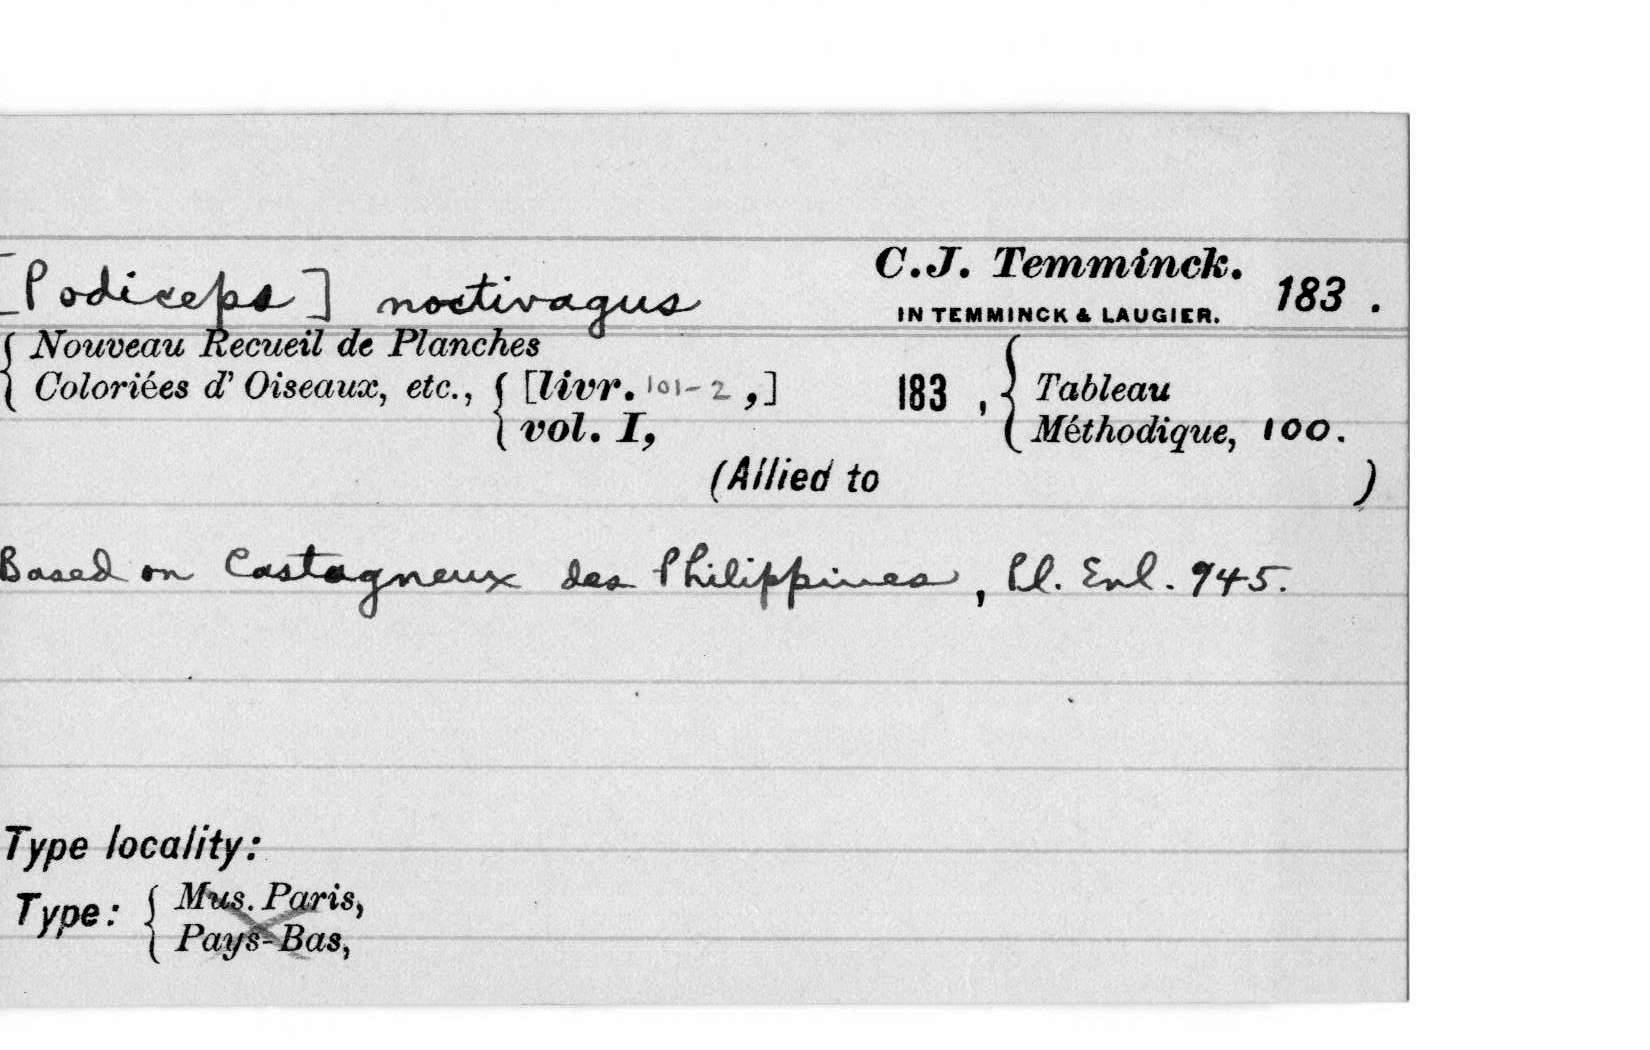 [Podiceps] noctivagus C.J. Temminck. 183.
IN TEMMINCK & LAUGIER.
{ Nouveau Recueil de Planches
Coloriées d' Oiseaux, etc., { [livr. 101-2,] 183, { Tableau
vol. I, Méthodique, 100.
(Allied to )
Based on Castagneux des Philippines, Pl. Enl. 945.
Type locality:
Type: { Mus. Paris,
Pays-Bas,